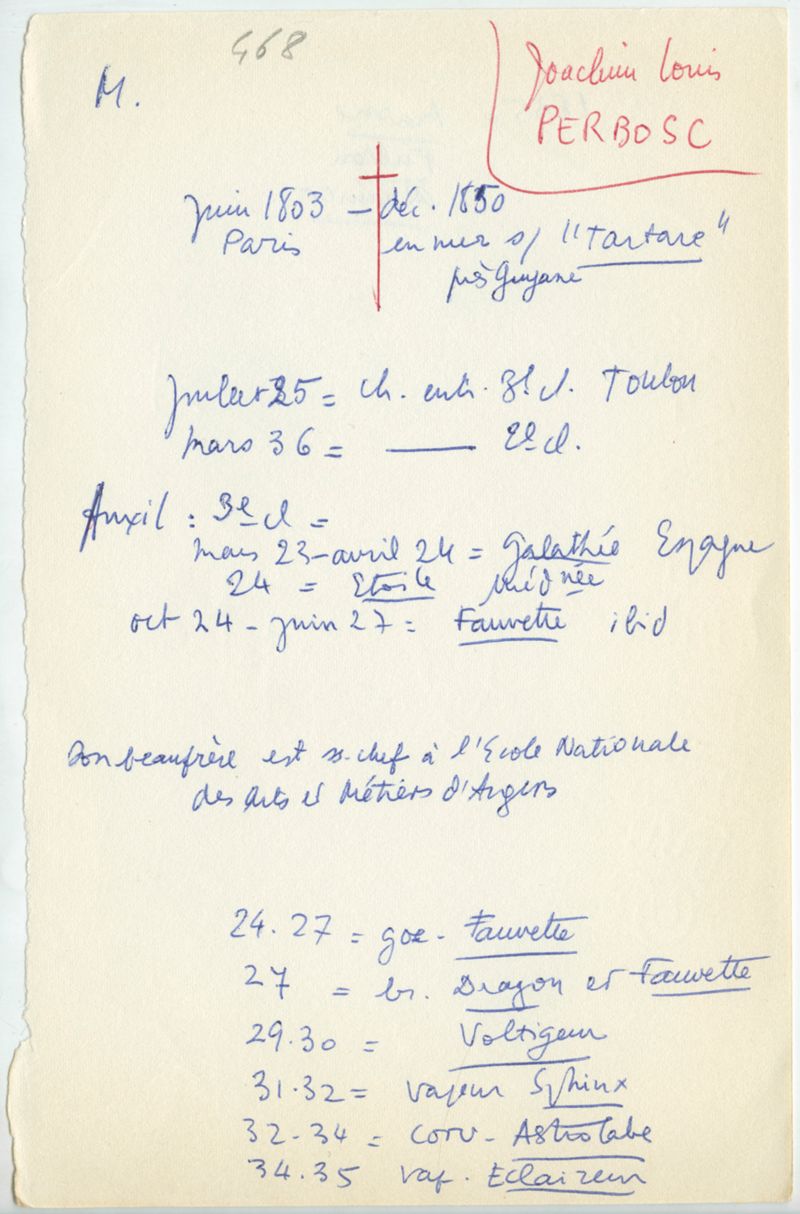 468
M.
Joachim Louis
PERBOSC
Juin 1803 – déc. 1850
Paris en mer s/ "Tartare"
près Guyane
Juillet 25 = ch. entr. 3e cl. Toulon
mars 36 = —— 2e cl.
Auxil : 3e cl =
mars 23-avril 24 = Galathée Espagne
24 = Etoile médnée
oct 24 - juin 27 = Fauvette ibid
Son beaufrère est ss-chef à l'Ecole Nationale
des Arts et Métiers d'Angers
24.27 = goe- Fauvette
27 = br. Dragon et Fauvette
29.30 = Voltigeur
31.32 = vapeur Sphinx
32-34 = corv- Astrolabe
34.35 vap. Eclaireur